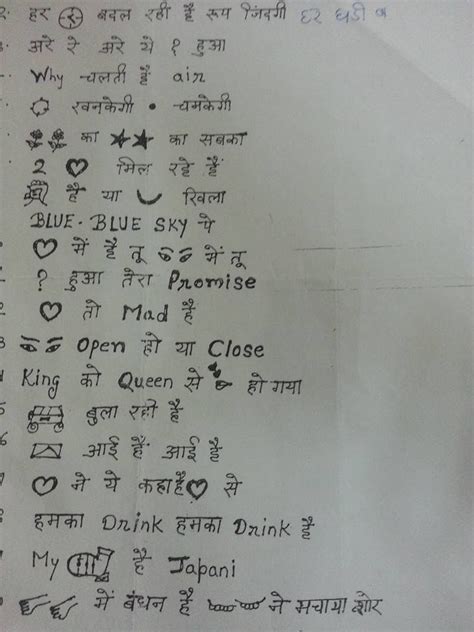 २. हर बदल रही है रूप जिंदगी हर घडी ब
अरे रे अरे ये १ हुआ
Why चलती है air
खनकेगी • चमकेगी
का का सबका
2 मिल रहे हैं
है या खिला
BLUE - BLUE SKY पे
में है तू में तू
? हुआ तेरा Promise
तो Mad है
Open हो या Close
King को Queen से हो गया
बुला रही है
आई है आई है
ने ये कहा है से
हमका Drink हमका Drink है
My है Japani
में बंधन है ने मचाया शोर